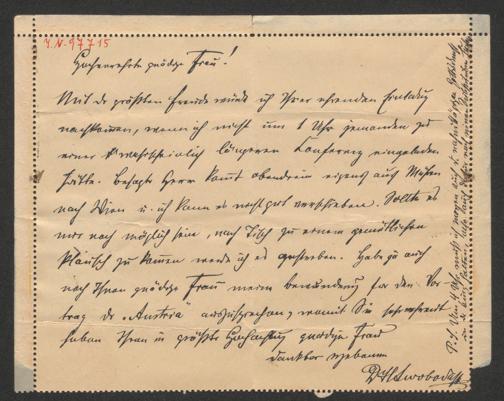 J.N. 97715
Hochverehrte gnädige Frau!
Mit der größten Freude würde ich Ihrer ehrenden Einladung
nachkommen, wenn ich nicht um 1 Uhr jemanden zu
einer wahrscheinlich längeren Conferenz eingeladen
hätte. Besagter Herr kommt obendrein eigens aus Mähren
nach Wien u. ich kann es nicht gut verschieben. Sollte es
mir noch möglich sein, nach Tisch zu einem gemütlichen
Plausch zu kommen werde ich es anstreben. Habe ja auch
noch Ihnen gnädige Frau meine Bewunderung für den Vor-
trag der "Austria" auszusprechen, womit Sie sehr erfreut
haben Ihren in größter Hochachtung gnädige Frau
dankbar ergebenen
Dr H Swoboda
P.S. Um 4 Uhr muß ich